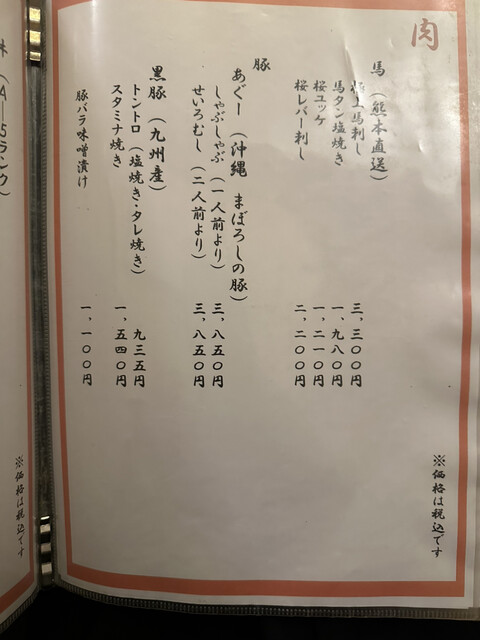 肉
馬（熊本直送）
極上馬刺し 三、三〇〇円
馬タン塩焼き 一、九八〇円
桜ユッケ 一、二一〇円
桜レバー刺し 二、二〇〇円
豚
あぐー（沖縄 まぼろしの豚）
しゃぶしゃぶ（一人前より） 三、八五〇円
せいろむし（二人前より） 三、八五〇円
黒豚（九州産）
トントロ（塩焼き・タレ焼き） 九三五円
スタミナ焼き 一、五四〇円
豚バラ味噌漬け 一、一〇〇円
※価格は税込です
（A―5ランク）
※価格は税込です